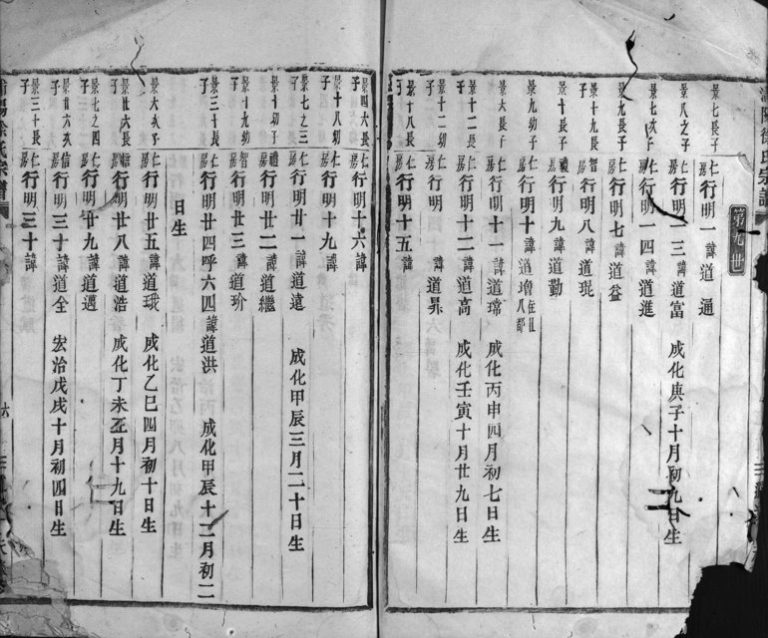 陽徐氏宗譜
第九世
景七長子仁房行明一諱道通
景八之子仁房行明一三諱道富 成化庚子十月初九日生
景七次子仁房行明一四諱道進
景九長子仁房行明七諱道益
景十九長子智房行明八諱道琨
景十長子禮房行明九諱道勤
景九幼子仁房行明十諱道增
景六長子仁房行明十一諱道瑺 成化丙申四月初七日生
景十二長子仁房行明十二諱道高 成化壬寅十月廿九日生
景十二幼子仁房行明 諱道昇
景十八長子仁房行明十五諱
景四六長子仁房行明十六諱
景十八幼子仁房行明十九諱
景七之三子仁房行明廿一諱道遠 成化甲辰三月二十日生
景十幼子禮房行明廿二諱道繼
景十九幼子智房行明廿三諱道玠
景三十長子仁房行明廿四呼六四諱道洪 成化甲辰十二月初二
日生
景六次子仁房行明廿五諱道珴 成化乙巳四月初十日生
景廿六長子信房行明廿八諱道浩 成化丁未正月十九日生
景七之四子仁房行明廿九諱道邁
景廿六次子信房行明三十諱道全 宏治戊戌十月初四日生
景三十長子仁房行明三十諱
陽徐氏宗譜
六